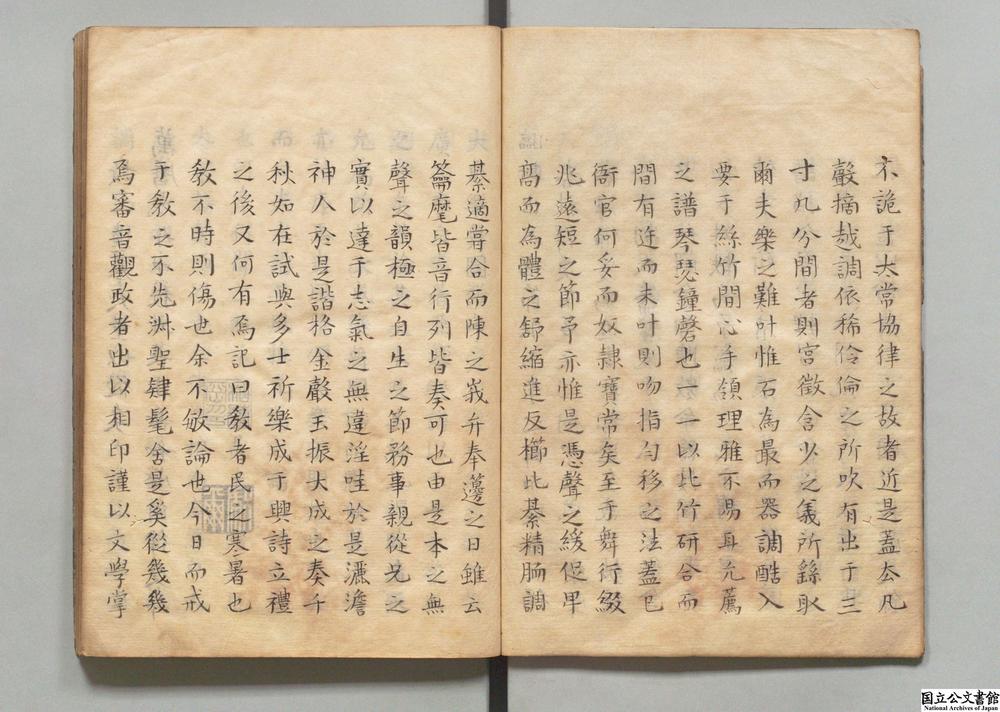 不詭于太常協律之故者近是蓋玄凡
嶰摘越調依稀伶倫之所吹有出于三
寸九分間者則宮徵含少之義所繇取
爾夫樂之難叶惟石為最而器調酷入
要于絲竹間心手領理雅不易耳允薦
之譜琴瑟鐘磬也一一以比竹研合而
間有迕而未叶則吻指勻移之法蓋已
衙官何妥而奴隷寶常矣至于舞行綴
兆遠短之節予亦惟是憑聲之緩促甲
高而為體之舒縮進反櫛比綦精肠調
大綦適嘗合而陳之峩弁奉籩之日雖云
籥麾皆音行列皆奏可也由是本之無
聲之韻極之自生之節務事親從兄之
實以達于志氣之無違淫哇於是灑澹
神人於是諧格金聲玉振大成之奏千
秋如在試與多士祈樂成于興詩立禮
之後又何有焉記曰教者民之寒暑也
教不時則傷也余不敏論也今日而戒
于教之不先淋聖肄髦舍是奚從幾幾
焉審音觀政者出以相印謹以文學掌
国立公文書館
National Archives of Japan